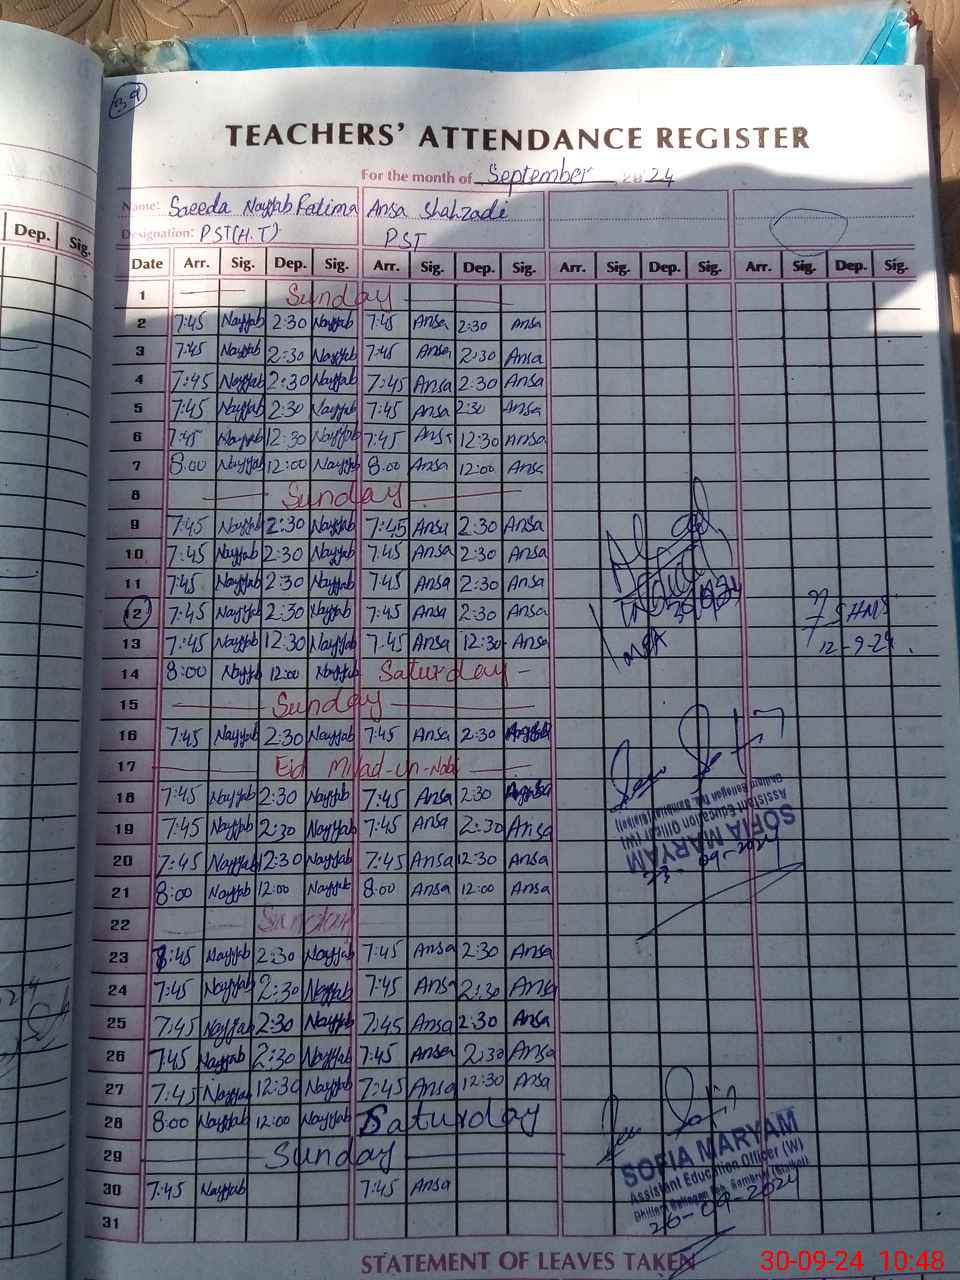 39
TEACHERS' ATTENDANCE REGISTER
For the month of September, 2024
Name: Saeeda Nayyab Fatima Ansa Shahzadi
Designation: PST(H.T) PST
Dep. Sig.
Date Arr. Sig. Dep. Sig. Arr. Sig. Dep. Sig. Arr. Sig. Dep. Sig. Arr. Sig. Dep. Sig.
1 Sunday
2 7:45 Nayyab 2:30 Nayyab 7:45 Ansa 2:30 Ansa
3 7:45 Nayyab 2:30 Nayyab 7:45 Ansa 2:30 Ansa
4 7:45 Nayyab 2:30 Nayyab 7:45 Ansa 2:30 Ansa
5 7:45 Nayyab 2:30 Nayyab 7:45 Ansa 2:30 Ansa
6 7:45 Nayyab 12:30 Nayyab 7:45 Ansa 12:30 Ansa
7 8:00 Nayyab 12:00 Nayyab 8:00 Ansa 12:00 Ansa
8 Sunday
9 7:45 Nayyab 2:30 Nayyab 7:45 Ansa 2:30 Ansa
10 7:45 Nayyab 2:30 Nayyab 7:45 Ansa 2:30 Ansa
11 7:45 Nayyab 2:30 Nayyab 7:45 Ansa 2:30 Ansa
12 7:45 Nayyab 2:30 Nayyab 7:45 Ansa 2:30 Ansa
13 7:45 Nayyab 12:30 Nayyab 7:45 Ansa 12:30 Ansa
12-9-24
14 8:00 Nayyab 12:00 Nayyab Saturday
15 Sunday
16 7:45 Nayyab 2:30 Nayyab 7:45 Ansa 2:30
17 Eid Milad-un-Nabi
18 7:45 Nayyab 2:30 Nayyab 7:45 Ansa 2:30
19 7:45 Nayyab 2:30 Nayyab 7:45 Ansa 2:30 Ansa
20 7:45 Nayyab 12:30 Nayyab 7:45 Ansa 12:30 Ansa
21 8:00 Nayyab 12:00 Nayyab 8:00 Ansa 12:00 Ansa
SOFIA MARYAM
Assistant Education Officer (W)
23-09-2024
22 Sunday
23 8:45 Nayyab 2:30 Nayyab 7:45 Ansa 2:30 Ansa
24 7:45 Nayyab 2:30 Nayyab 7:45 Ansa 2:30 Ansa
25 7:45 Nayyab 2:30 Nayyab 7:45 Ansa 2:30 Ansa
26 7:45 Nayyab 2:30 Nayyab 7:45 Ansa 2:30 Ansa
27 7:45 Nayyab 12:30 Nayyab 7:45 Ansa 12:30 Ansa
28 8:00 Nayyab 12:00 Nayyab Saturday
29 Sunday
30 7:45 Nayyab 7:45 Ansa
31
SOFIA MARYAM
Assistant Education Officer (W)
26-09-2024
STATEMENT OF LEAVES TAKEN
30-09-24 10:48